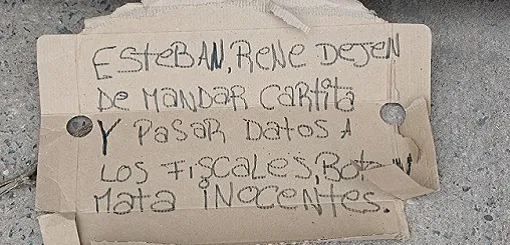 ESteBAN, RENE DEJEN
DE MANDAR CARtitA
Y PASAR DAtOS A
LOS FISCALES,
MAtA iNOCeNtES.